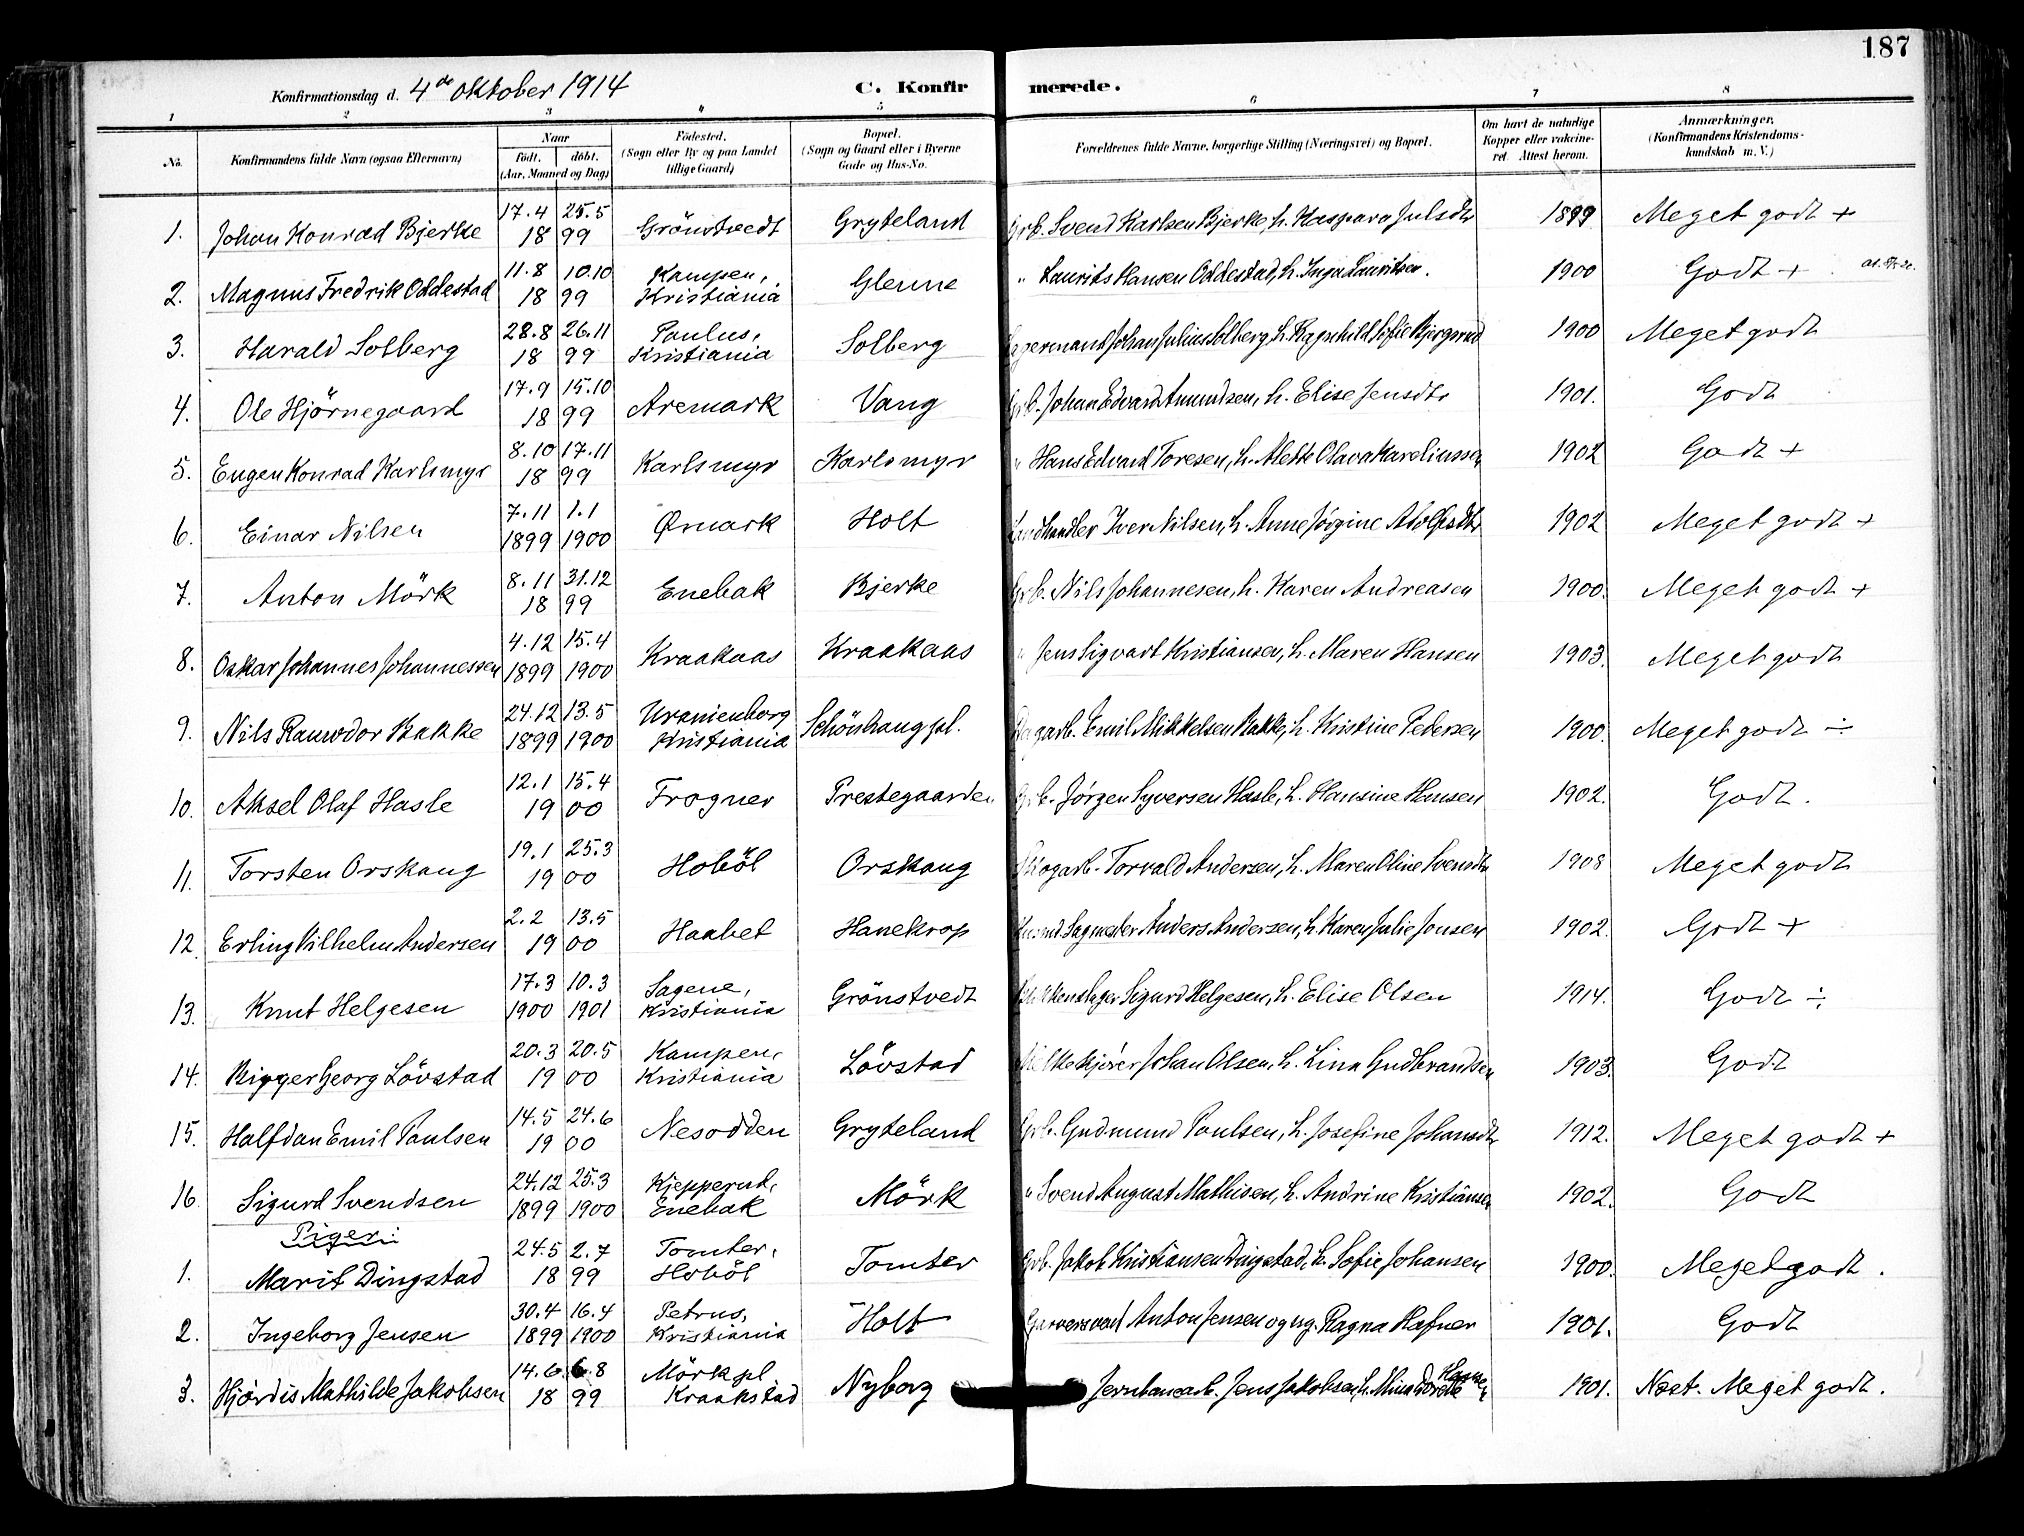 187
Konfirmationsdag d. 4de oktober 1914 C. Konfirmerede.
1 2 3 4 5 6 7 8
No. Konfirmandens fulde Navn (ogsaa Efternavn) Naar født. døbt. (Aar, Maaned og Dag) Fødested. (Sogn eller By og paa Landet tillige Gaard) Bopæl. (Sogn og Gaard eller i Byerne Gade og Hus-No. Forældrenes fulde Navne, borgerlige Stilling (Næringsvei) og Bopæl. Om havt de naturlige Kopper eller vakcineret. Attest herom. Anmærkninger. (Konfirmandens Kristendomskundskab m. V.)
1. Johan Konrad Bjerke 17.4 25.5 1899 Grönstvedt Gryteland Grb. Svend Karlsen Bjerke, h. Kaspara Julsdtr 1899 Meget godt +
2. Magnus Fredrik Oddestad 11.8 10.10 1899 Kampen, Kristiania Glenne " Laurits Hansen Oddestad, h. Inga Lauritsen. 1900 Godt +
3. Harald Solberg 28.8 26.11 1899 Paulus, Kristiania Solberg Lagermand Johan Julius Solberg, h. Ragnhild Sofie Bjergsrud 1900 Meget godt
4. Ole Hjörnegaard 17.9 15.10 1899 Aremark Vang Grb. Johan Edvard Amundsen, h. Elise Jensdtr 1901. Godt
5. Eugen Konrad Karlsmyr 8.10 17.11 1899 Karlsmyr Karlsmyr " Hans Edvard Toresen, h. Alette Olava Kareliussen 1902 Godt +
6. Einar Nilsen 7.11 1.1 1899 1900 Ømark Holt Landhandler Iver Nilsen, h. Anne Jørgine Adolfsdtr 1902 Meget godt +
7. Anton Mörk 8.11 31.12 1899 Enebak Bjerke Grb. Nils Johannesen, h. Karen Andreasen 1900. Meget godt +
8. Oskar Johannes Johannessen 4.12 15.4 1899 1900 Kraakaas Kraakaas " Jens Sigvart Kristiansen, h. Maren Hansen 1903. Meget godt
9. Nils Ranvdor Bakke 24.12 13.5 1899 1900 Uranienborg Kristiania Schönhaug pl. Dagarb. Emil Mikkelsen Bakke, h. Kristine Pedersen 1900. Meget godt ÷
10. Aksel Olaf Hasle 12.1 15.4 1900 Frogner Prestegaarden Grb. Jørgen Syversen Hasle, h. Hansine Hansen 1902. Godt.
11. Torsten Orskaug 19.1 25.3 1900 Hoböl Orskaug Skogarb. Torvald Andersen, h. Maren Oline Svendsdtr 1908 Meget godt
12. Erling Vilhelm Andersen 2.2 13.5 1900 Haabet Hanekrop Husmd. Sagmester Anders Andersen, h. Karen Julie Jonsen 1902. Godt +
13. Knut Helgesen 17.3 10.3 1900 1901 Sagene, Kristiania Grönstvedt Blikkenslager Sigurd Helgesen, h. Elise Olsen 1914. Godt ÷
14. Birger Georg Lövstad 20.3 20.5 1900 Kampen, Kristiania Lövstad Melkekjører Johan Olsen, h. Lina Gudbrandsen 1903. Godt
15. Halfdan Emil Paulsen 14.5 24.6 1900 Nesodden Gryteland Grb. Gudmund Paulsen, h. Josefine Johansdtr 1912. Meget godt +
16. Sigurd Svendsen 24.12 25.3 1899 1900 Kjepperud, Enebak Mörk " Svend August Mathisen, h. Andrine Kristiansen 1902. Godt
Piger:
1. Marit Dingstad 24.5 2.7 1899 Tomter, Hoböl Tomter Grb. Jakob Kristiansen Dingstad, h. Sofie Johansen 1900. Meget godt.
2. Ingeborg Jensen 30.4 16.4 1899 1900 Petrus, Kristiania Holt Garversvend Anton Jensen og ug. Ragna Hafner 1901. Godt
3. Hjördis Mathilde Jakobsen 14.6 6.8 1899 Mörk pl Kraakstad Nyborg Jernbanearb. Jens Jakobsen, h. Mina Dorete Hansen 1901. Næst. Meget godt.